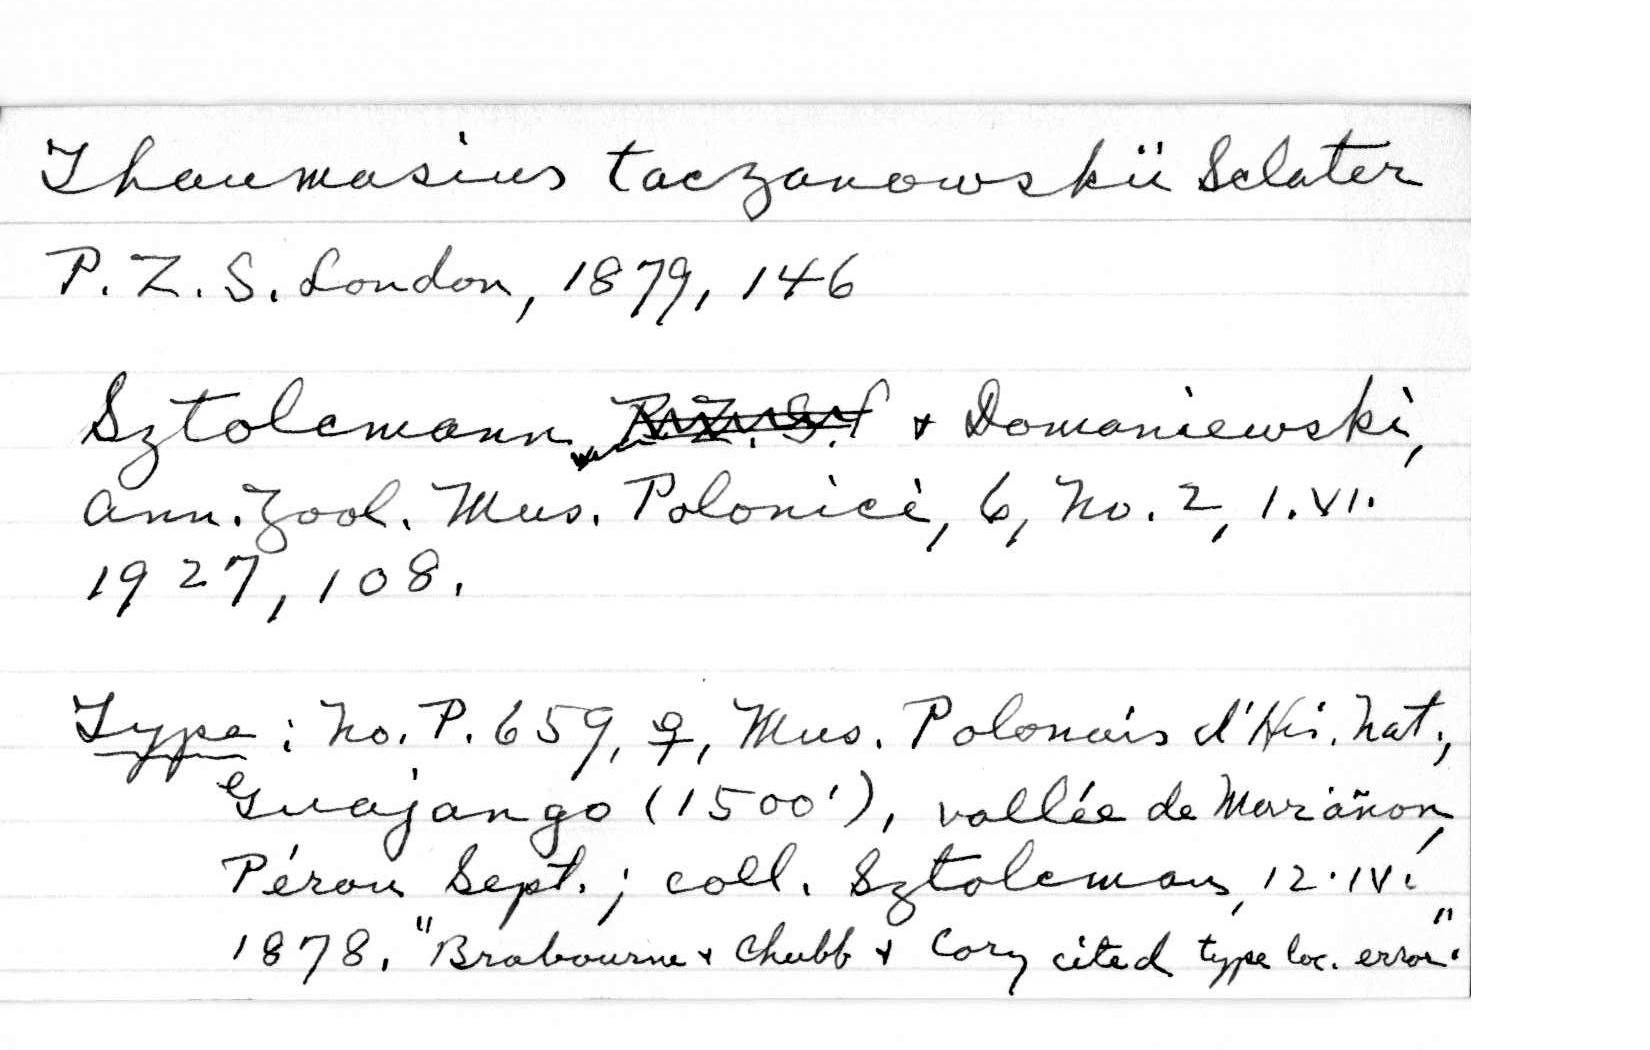 Thaumasius taczanowskii Sclater
P. Z. S. London, 1879, 146
Sztolcmann & Domaniewski,
Ann. Zool. Mus. Polonici, 6, No. 2, 1.VI.
1927, 108.
Type: No. P. 659, ♀, Mus. Polonais d'His. Nat.,
Guajango (1500'), vallée de Marañon,
Pérou Sept.; coll. Sztolcman, 12.IV.
1878. "Brabourne & Chubb & Cory cited type loc. error".